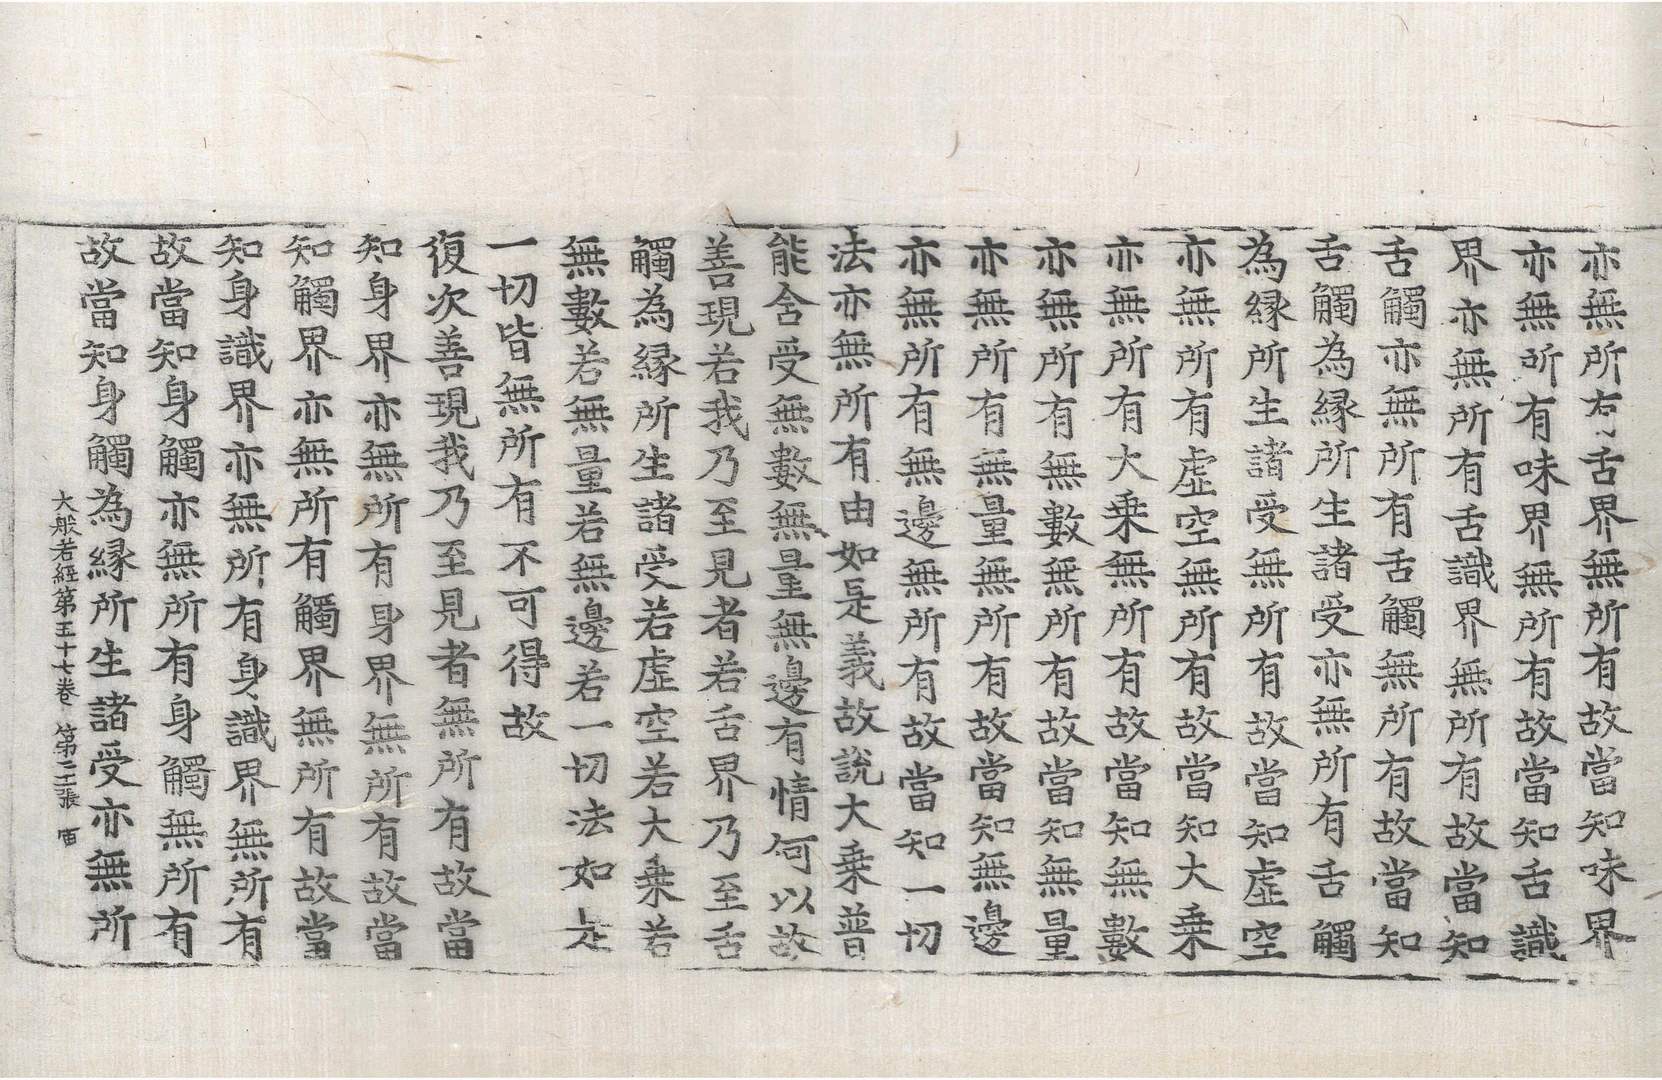 亦無所有舌界無所有故當知味界
亦無所有味界無所有故當知舌識
界亦無所有舌識界無所有故當知
舌觸亦無所有舌觸無所有故當知
舌觸為緣所生諸受亦無所有舌觸
為緣所生諸受無所有故當知虛空
亦無所有虛空無所有故當知大乘
亦無所有大乘無所有故當知無數
亦無所有無數無所有故當知無量
亦無所有無量無所有故當知無邊
亦無所有無邊無所有故當知一切
法亦無所有由如是義故說大乘普
能含受無數無量無邊有情何以故
善現若我乃至見者若舌界乃至舌
觸為緣所生諸受若虛空若大乘若
無數若無量若無邊若一切法如是
一切皆無所有不可得故
復次善現我乃至見者無所有故當
知身界亦無所有身界無所有故當
知觸界亦無所有觸界無所有故當
知身識界亦無所有身識界無所有
故當知身觸亦無所有身觸無所有
故當知身觸為緣所生諸受亦無所
大般若經第五十七卷 第二十張 宙